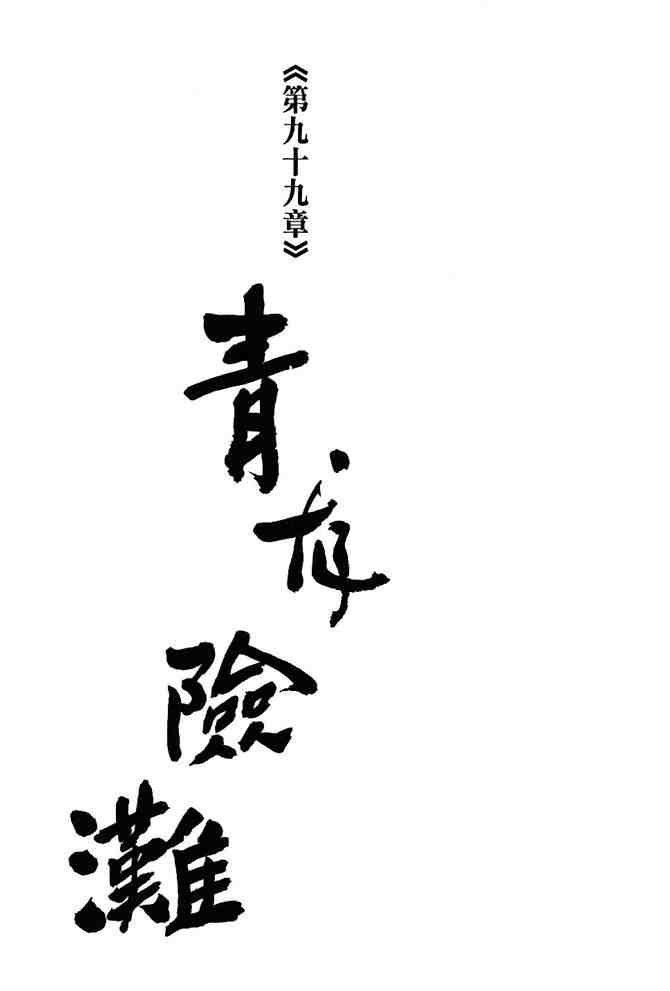 《第九十九章》
青存險灘